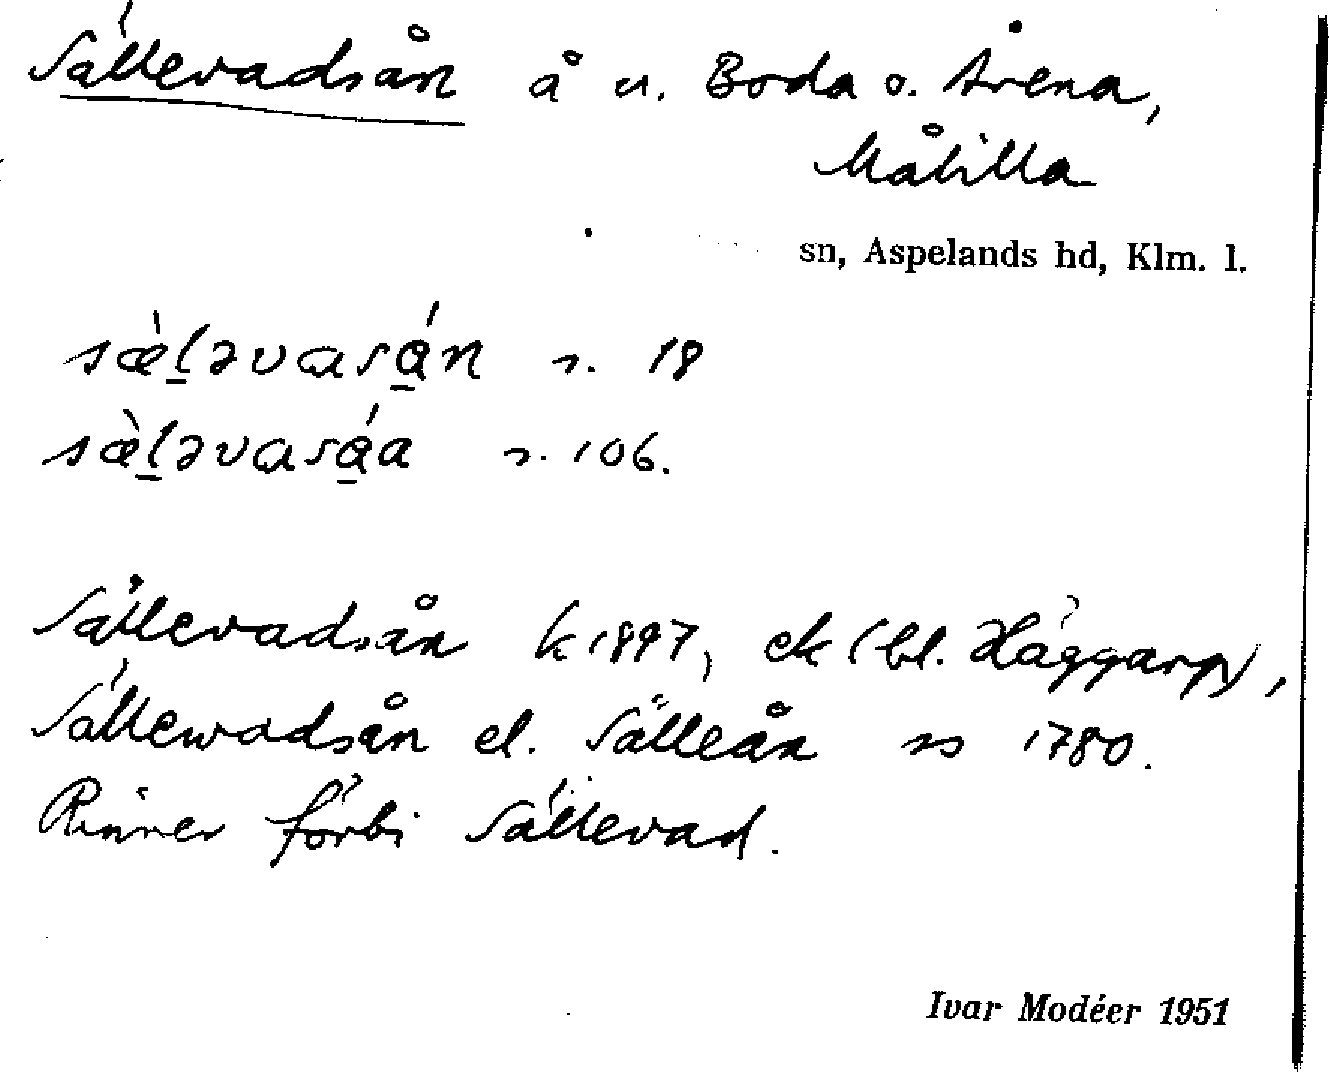 Sällevadsån å u. Boda o. Årena,
Målilla
sn, Aspelands hd, Klm. l.
sæ̀l̠əvasá̠n s. 18
sæ̀l̠əvasá̠a s. 106.
Sällevadsån k 1897, ek (bl. Häggarp),
Sällewadsån el. Sälleån ss 1780.
Rinner förbi Sällevad.
Ivar Modéer 1951